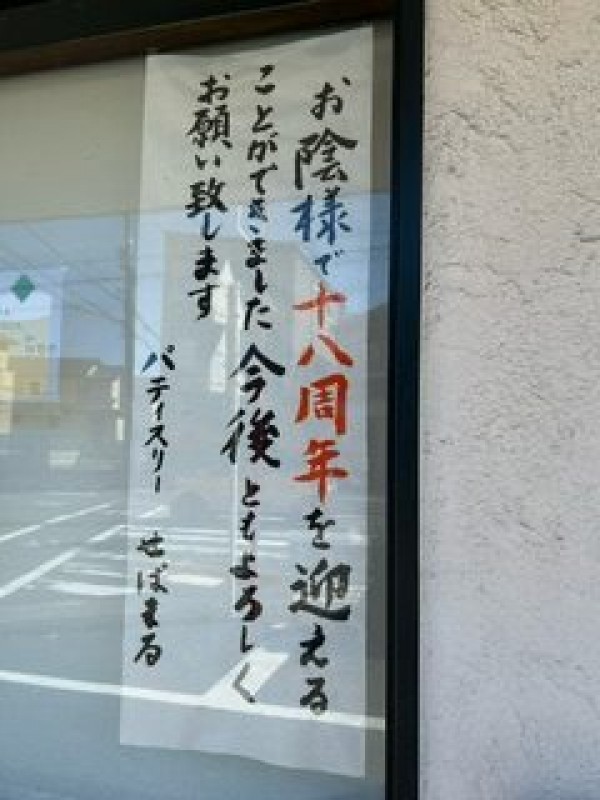 お陰様で十八周年を迎える
ことができました今後ともよろしく
お願い致します
パティスリー せばまる